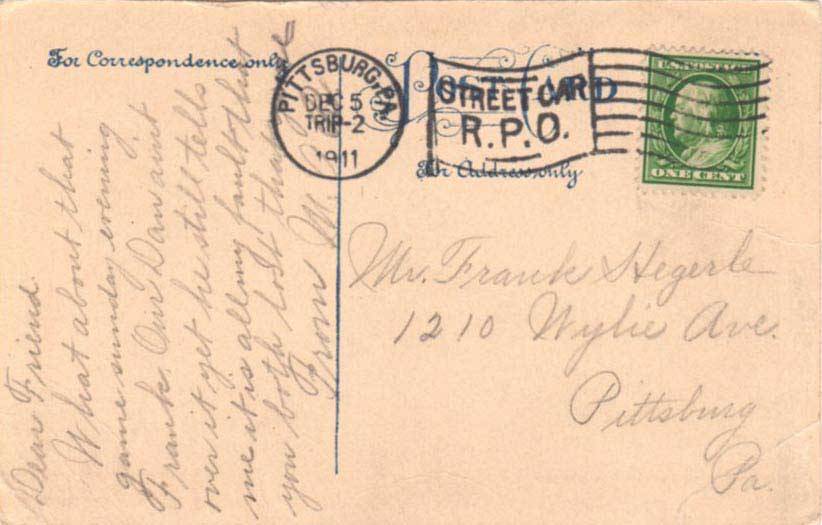 For Correspondence only
POST CARD
For Address only
PITTSBURG, PA.
DEC 5
TRIP-2
1911
STREET CAR
R.P.O.
U.S. POSTAGE
ONE CENT
Dear Friend.
What about that
game sunday evening
Frank. Our Dan aint
over it yet he still tells
me it is all my fault that
you both lost that
From M.
Mr. Frank Hegerle
1210 Wylie Ave.
Pittsburg
Pa.